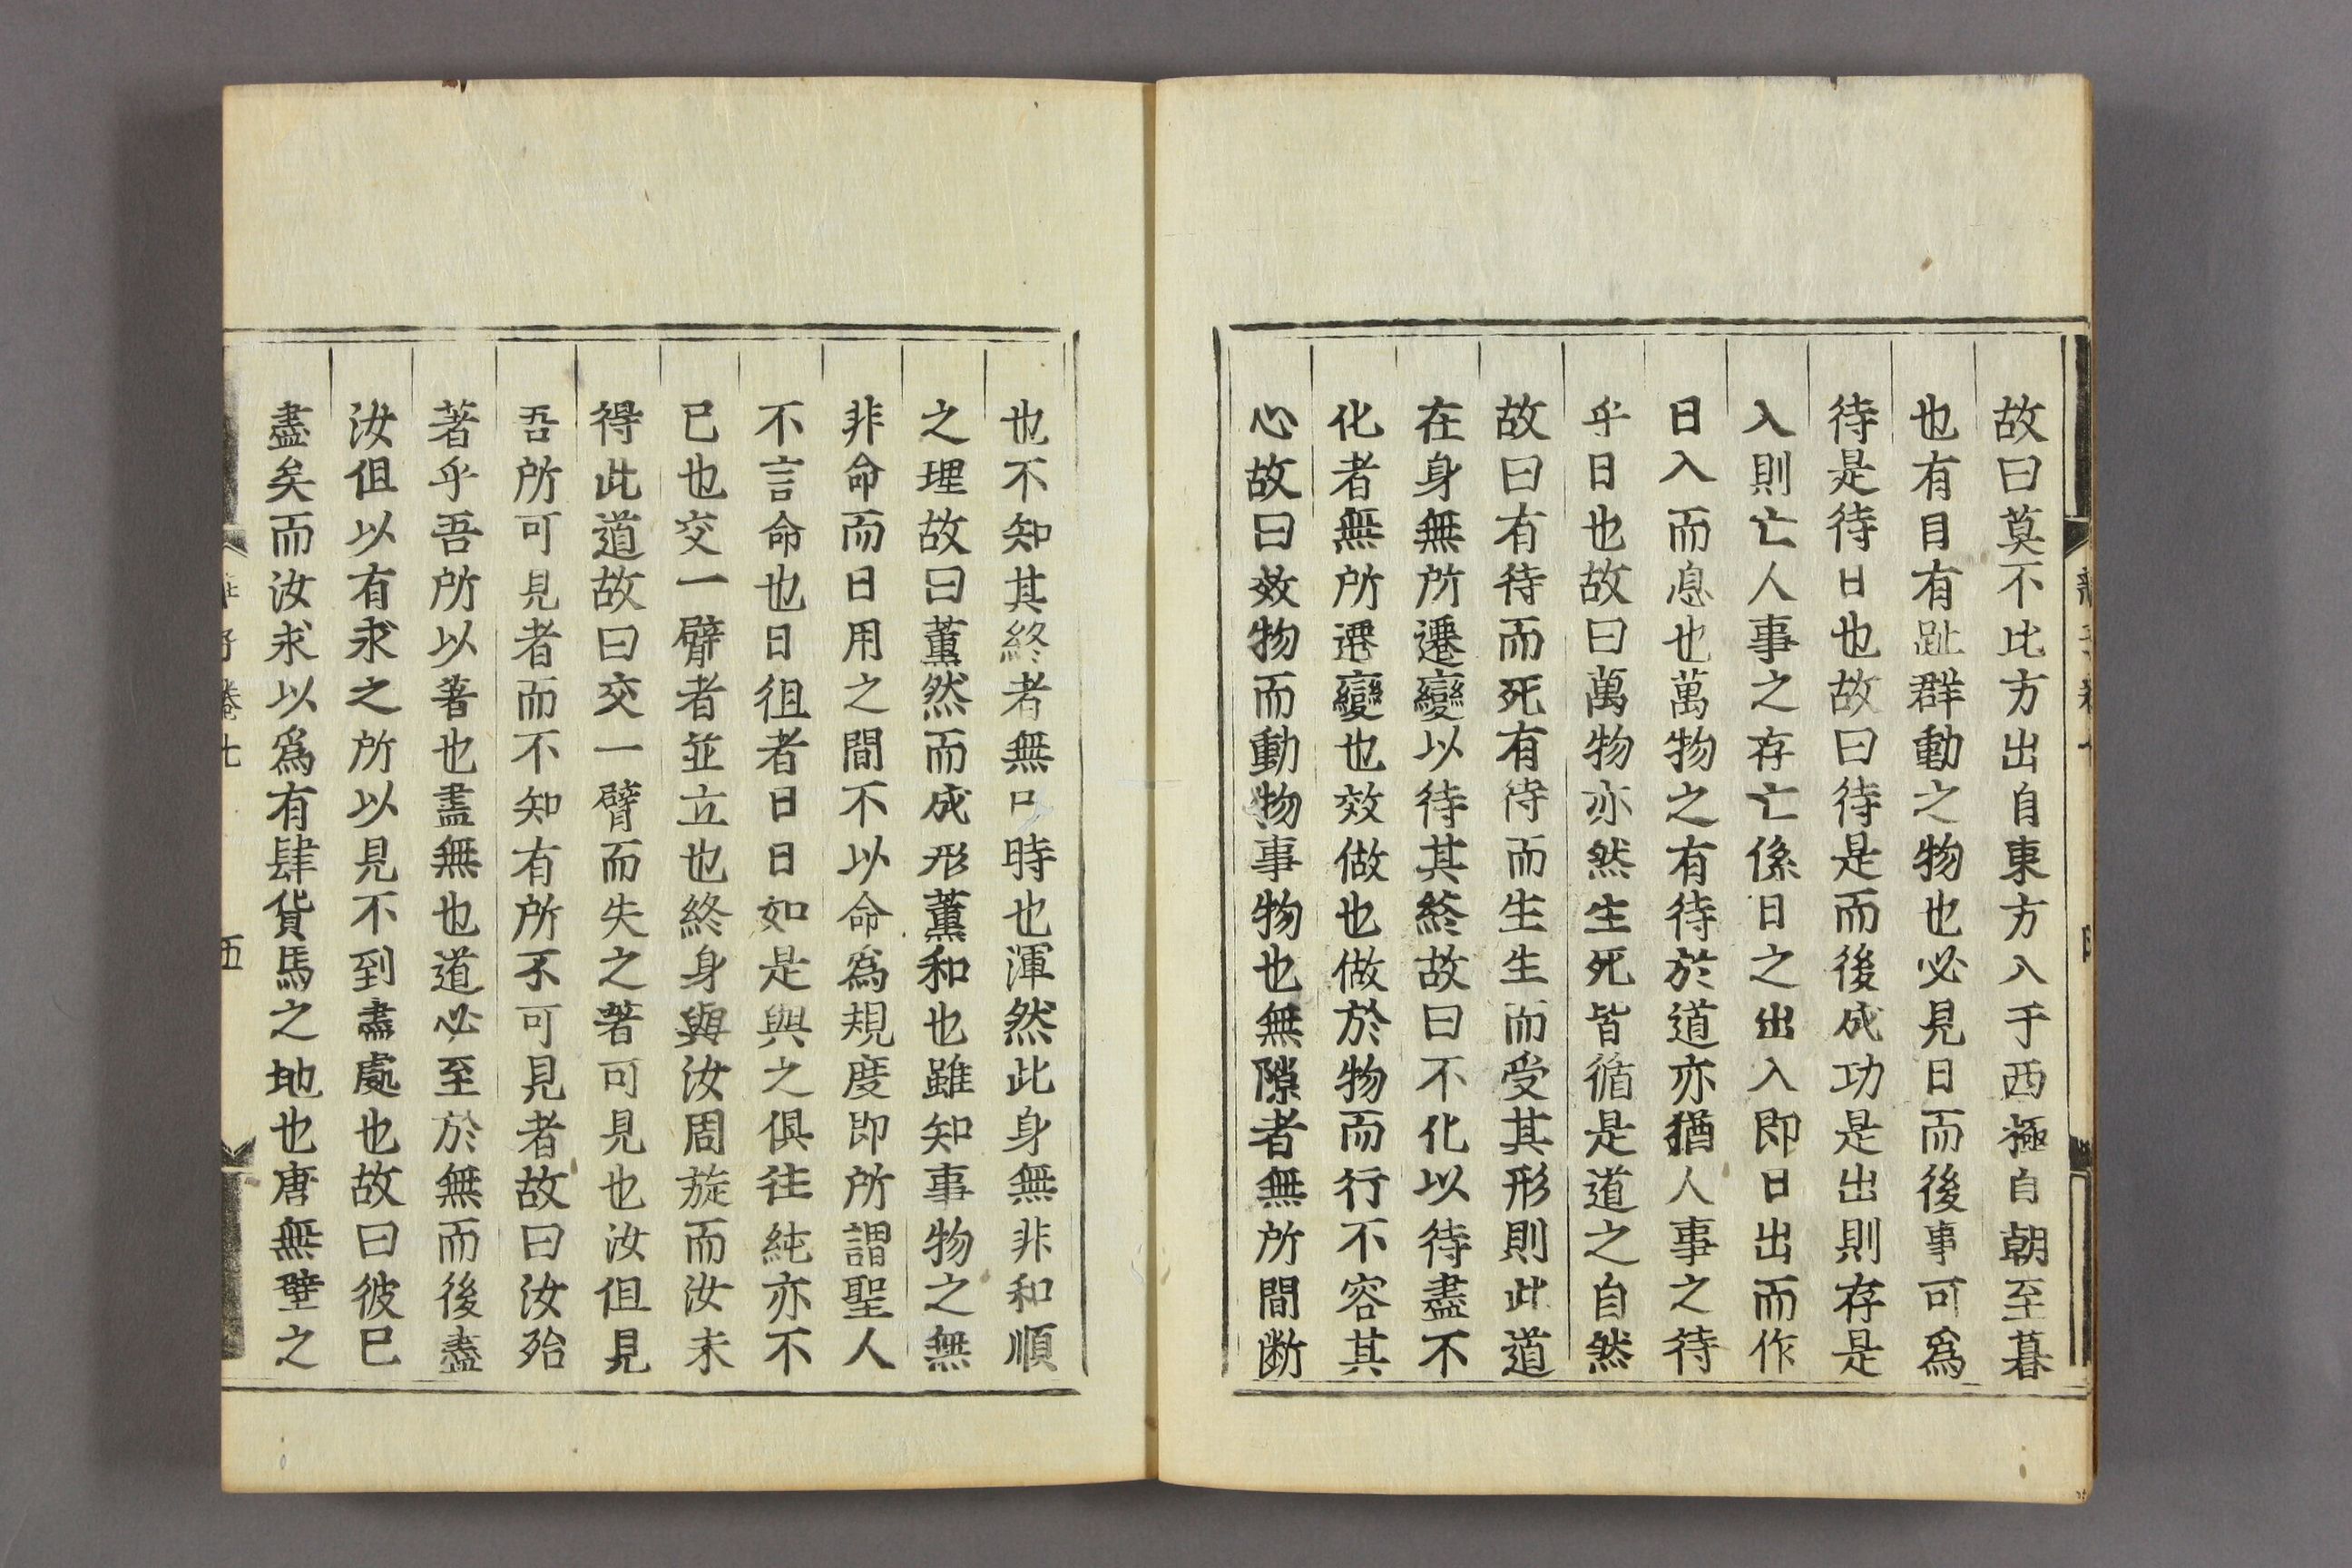 故曰莫不比方出自東方入于西極自朝至暮
也有目有趾群動之物也必見日而後事可爲
待是待日也故曰待是而後成功是出則存是
入則亡人事之存亡係日之出入即日出而作
日入而息也萬物之有待於道亦猶人事之待
乎日也故曰萬物亦然生死皆循是道之自然
故曰有待而死有待而生生而受其形則此道
在身無所遷變以待其終故曰不化以待盡不
化者無所遷變也效做也做於物而行不容其
心故曰效物而動物事物也無隙者無所間断
也不知其終者無時也渾然此身無非和順
之理故曰薰然而成形薰和也雖知事物之無
非命而日用之間不以命爲規度即所謂聖人
不言命也日徂者日日如是與之俱往純亦不
已也交一臂者並立也終身與汝周旋而汝未
得此道故曰交一臂而失之著可見也汝但見
吾所可見者而不知有所不可見者故曰汝殆
著乎吾所以著也盡無也道必至於無而後盡
汝但以有求之所以見不到盡處也故曰彼已
盡矣而汝求以爲有肆貨馬之地也唐無壁之
五